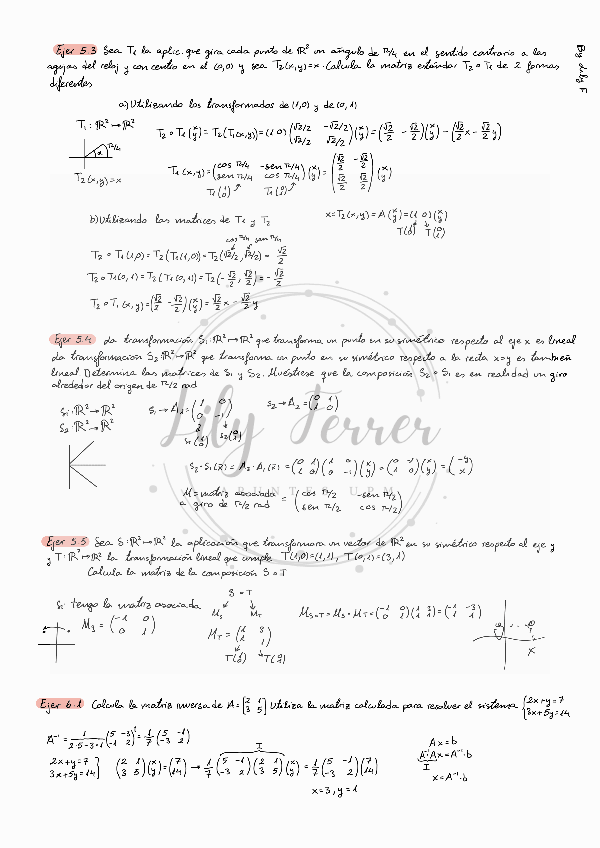 By Lily F
Ejer 5.3 Sea T₁ la aplic. que gira cada punto de ℝ² un ángulo de π/4 en el sentido contrario a las
agujas del reloj y con centro en el (0,0) y sea T₂(x,y)=x. Calcula la matriz estándar T₂∘T₁ de 2 formas
diferentes
a) Utilizando los transformados de (1,0) y de (0,1)
T₁: ℝ²→ℝ²
π/4
T₂(x,y)=x
T₂∘T₁(x y)=T₂(T₁(x,y))=(1 0)(√2/2 -√2/2 √2/2 √2/2)(x y)=(√2/2 -√2/2)(x y)=(√2/2 x - √2/2 y)
T₁(x,y)=(cos π/4 -sen π/4 sen π/4 cos π/4)(x y)=(√2/2 -√2/2 √2/2 √2/2)(x y)
T₁(1 0) T₁(0 1)
b) Utilizando las matrices de T₁ y T₂
x=T₂(x,y)=A(x y)=(1 0)(x y)
T(1 0) T(0 1)
cos π/4 sen π/4
T₂∘T₁(1,0)=T₂(T₁(1,0))=T₂(√2/2, √2/2)=√2/2
T₂∘T₁(0,1)=T₂(T₁(0,1))=T₂(-√2/2, √2/2)=-√2/2
T₂∘T₁(x,y)=(√2/2 -√2/2)(x y)=√2/2 x - √2/2 y
Ejer 5.4 La transformación S₁:ℝ²→ℝ² que transforma un punto en su simétrico respecto al eje x es lineal
La transformación S₂:ℝ²→ℝ² que transforma un punto en su simétrico respecto a la recta x=y es también
lineal. Determina las matrices de S₁ y S₂. Muéstrese que la composición S₂∘S₁ es en realidad un giro
alrededor del origen de π/2 rad
S₁: ℝ²→ℝ²
S₂: ℝ²→ℝ²
S₁→A₁=(1 0 0 -1)
S₂→A₂=(0 1 1 0)
S₂∘S₁(x̄)=A₂·A₁(x̄)=(0 1 1 0)(1 0 0 -1)(x y)=(0 -1 1 0)(x y)=(-y x)
M=matriz asociada
a giro de π/2 rad =(cos π/2 -sen π/2 sen π/2 cos π/2)
Lily Ferrer
APUNTES URM
Ejer 5.5 Sea S:ℝ²→ℝ² la aplicación que transforma un vector de ℝ² en su simétrico respecto al eje y
y T:ℝ²→ℝ² la transformación lineal que cumple T(1,0)=(1,1), T(0,1)=(3,1)
Calcula la matriz de la composición S∘T
Si tengo la matriz asociada
M_S=(-1 0 0 1)
S∘T
M_S M_T
M_T=(1 3 1 1)
T(1 0) T(0 1)
M_S∘T=M_S·M_T=(-1 0 0 1)(1 3 1 1)=(-1 -3 1 1)
x
Ejer 6.1 Calcula la matriz inversa de A=[2 1 3 5] Utiliza la matriz calculada para resolver el sistema {2x+y=7 3x+5y=14
A⁻¹=1/(2·5-3·1)(5 -3 -1 2)ᵗ=1/7(5 -1 -3 2)
2x+y=7
3x+5y=14
(2 1 3 5)(x y)=(7 14)→1/7(5 -1 -3 2)(2 1 3 5)(x y)=1/7(5 -1 -3 2)(7 14)
I
x=3, y=1
Ax=b
A⁻¹Ax=A⁻¹·b
I
x=A⁻¹·b